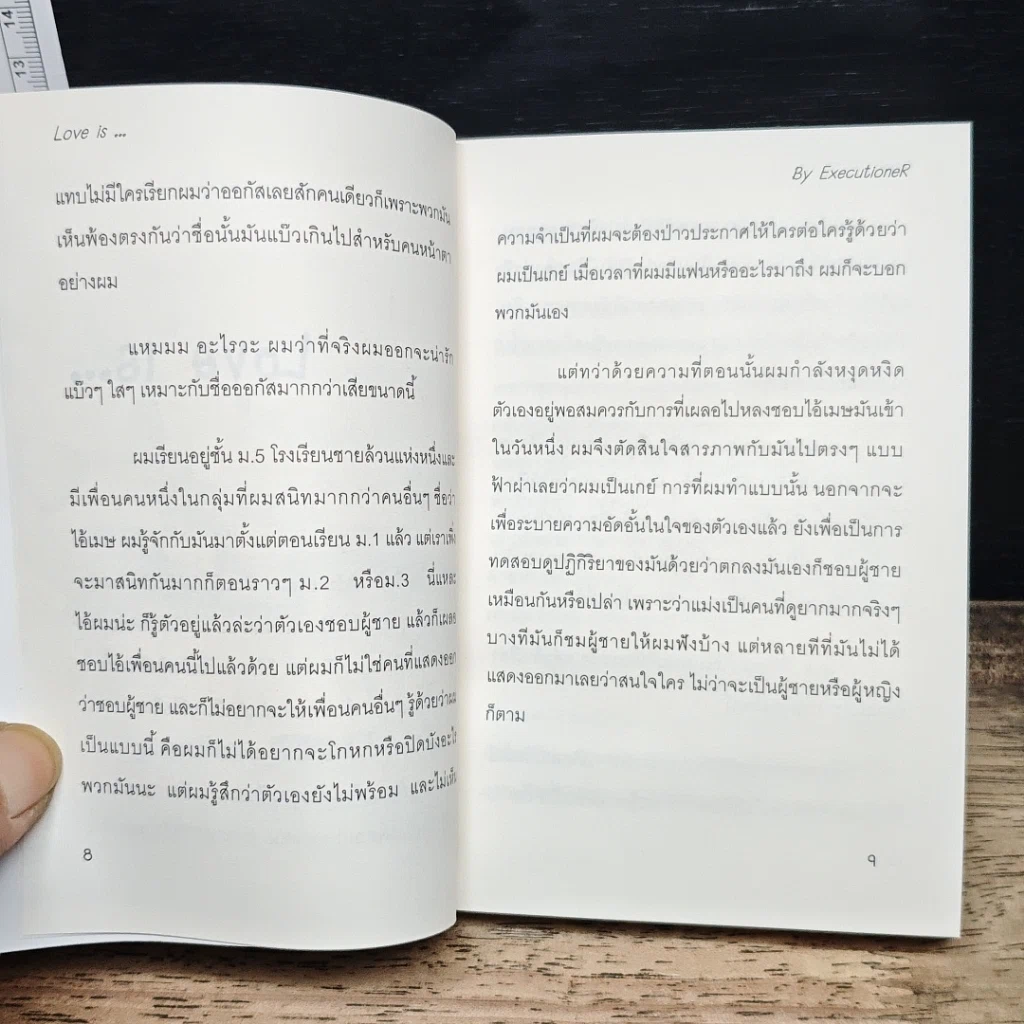 14
13
Love is ...
แทบไม่มีใครเรียกผมว่าออกัสเลยสักคนเดียวก็เพราะพวกมัน
เห็นพ้องตรงกันว่าชื่อนั้นมันแบ๊วเกินไปสำหรับคนหน้าตา
อย่างผม
แหมมม อะไรวะ ผมว่าที่จริงผมออกจะน่ารัก
แบ๊วๆ ใสๆ เหมาะกับชื่อออกัสมากกว่าเสียขนาดนี้
ผมเรียนอยู่ชั้น ม.5 โรงเรียนชายล้วนแห่งหนึ่งและ
มีเพื่อนคนหนึ่งในกลุ่มที่ผมสนิทมากกว่าคนอื่นๆ ชื่อว่า
ไอ้เมษ ผมรู้จักกับมันมาตั้งแต่ตอนเรียน ม.1 แล้ว แต่เราเพิ่ง
จะมาสนิทกันมากก็ตอนราวๆ ม.2 หรือม.3 นี่แหละ
ไอ้ผมน่ะ ก็รู้ตัวอยู่แล้วล่ะว่าตัวเองชอบผู้ชาย แล้วก็เผลอ
ชอบไอ้เพื่อนคนนี้ไปแล้วด้วย แต่ผมก็ไม่ใช่คนที่แสดงออก
ว่าชอบผู้ชาย และก็ไม่อยากจะให้เพื่อนคนอื่นๆ รู้ด้วยว่าผม
เป็นแบบนี้ คือผมก็ไม่ได้อยากจะโกหกหรือปิดบังอะไร
พวกมันนะ แต่ผมรู้สึกว่าตัวเองยังไม่พร้อม และไม่เห็น
8
By ExecutioneR
ความจำเป็นที่ผมจะต้องป่าวประกาศให้ใครต่อใครรู้ด้วยว่า
ผมเป็นเกย์ เมื่อเวลาที่ผมมีแฟนหรืออะไรมาถึง ผมก็จะบอก
พวกมันเอง
แต่ทว่าด้วยความที่ตอนนั้นผมกำลังหงุดหงิด
ตัวเองอยู่พอสมควรกับการที่เผลอไปหลงชอบไอ้เมษมันเข้า
ในวันหนึ่ง ผมจึงตัดสินใจสารภาพกับมันไปตรงๆ แบบ
ฟ้าผ่าเลยว่าผมเป็นเกย์ การที่ผมทำแบบนั้น นอกจากจะ
เพื่อระบายความอัดอั้นในใจของตัวเองแล้ว ยังเพื่อเป็นการ
ทดสอบดูปฏิกิริยาของมันด้วยว่าตกลงมันเองก็ชอบผู้ชาย
เหมือนกันหรือเปล่า เพราะว่าแม่งเป็นคนที่ดูยากมากจริงๆ
บางทีมันก็ชมผู้ชายให้ผมฟังบ้าง แต่หลายทีที่มันไม่ได้
แสดงออกมาเลยว่าสนใจใคร ไม่ว่าจะเป็นผู้ชายหรือผู้หญิง
ก็ตาม
9